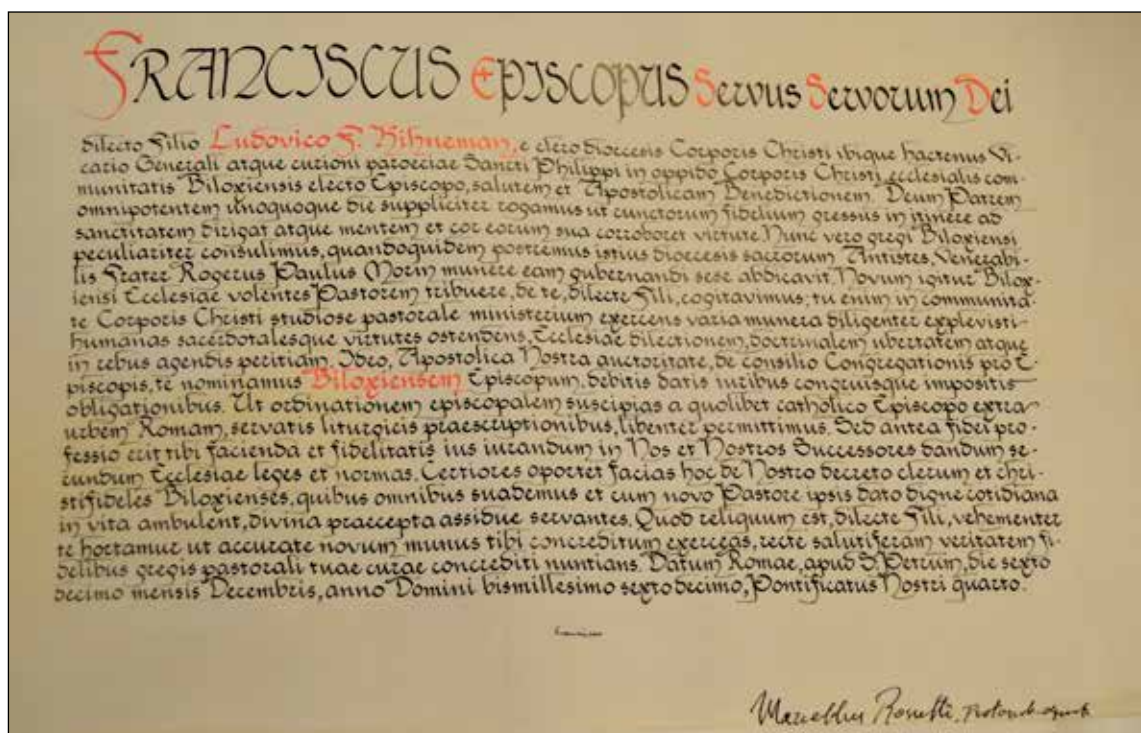 FRANCISCUS EPISCOPUS Servus Servorum Dei
dilecto Filio Ludovico F. Kihneman, e clero dioecesis Corporis Christi ibique hactenus Vi-
cario Generali atque curioni paroeciae Sancti Philippi in oppido Corporis Christi, ecclesialis com-
munitatis Biloxiensis electo Episcopo, salutem et Apostolicam Benedictionem. Deum Patrem
omnipotentem unoquoque die suppliciter rogamus ut cunctorum fidelium gressus in itinere ad
sanctitatem dirigat atque mentem et cor eorum sua corroboret virtute. Nunc vero gregi Biloxiensi
peculiariter consulimus, quandoquidem postremus istius dioecesis sacrorum Antistes, Venerabi-
lis Frater Rogerus Paulus Morin munere eam gubernandi sese abdicavit. Novum igitur Bilox-
iensi Ecclesiae volentes Pastorem tribuere, de te, dilecte Fili, cogitavimus; tu enim in communita-
te Corporis Christi studiose pastorale ministerium exercens varia munera diligenter explevisti
humanas sacerdotalesque virtutes ostendens, Ecclesiae dilectionem, doctrinalem ubertatem atque
in rebus agendis peritiam. Ideo, Apostolica Nostra auctoritate, de consilio Congregationis pro E-
piscopis, te nominamus Biloxiensem Episcopum, debitis datis iuribus congruisque impositis
obligationibus. Ut ordinationem episcopalem suscipias a quolibet catholico Episcopo extra
urbem Romam, servatis liturgicis praescriptionibus, libenter permittimus. Sed antea fidei pro-
fessio erit tibi facienda et fidelitatis ius iurandum in Nos et Nostros Successores dandum se-
cundum Ecclesiae leges et normas. Certiores oportet facias hoc de Nostro decreto clerum et chri-
stifideles Biloxienses, quibus omnibus suademus et cum novo Pastore ipsis dato digne cotidiana
in vita ambulent, divina praecepta assidue servantes. Quod reliquum est, dilecte Fili, vehementer
te hortamur ut accurate novum munus tibi concreditum exerceas, recte salutiferam veritatem fi-
delibus gregis pastorali tuae curae concrediti nuntians. Datum Romae, apud S. Petrum, die sexto
decimo mensis Decembris, anno Domini bismillesimo sexto decimo, Pontificatus Nostri quarto.
Franciscus
Marcellus Rossetti,